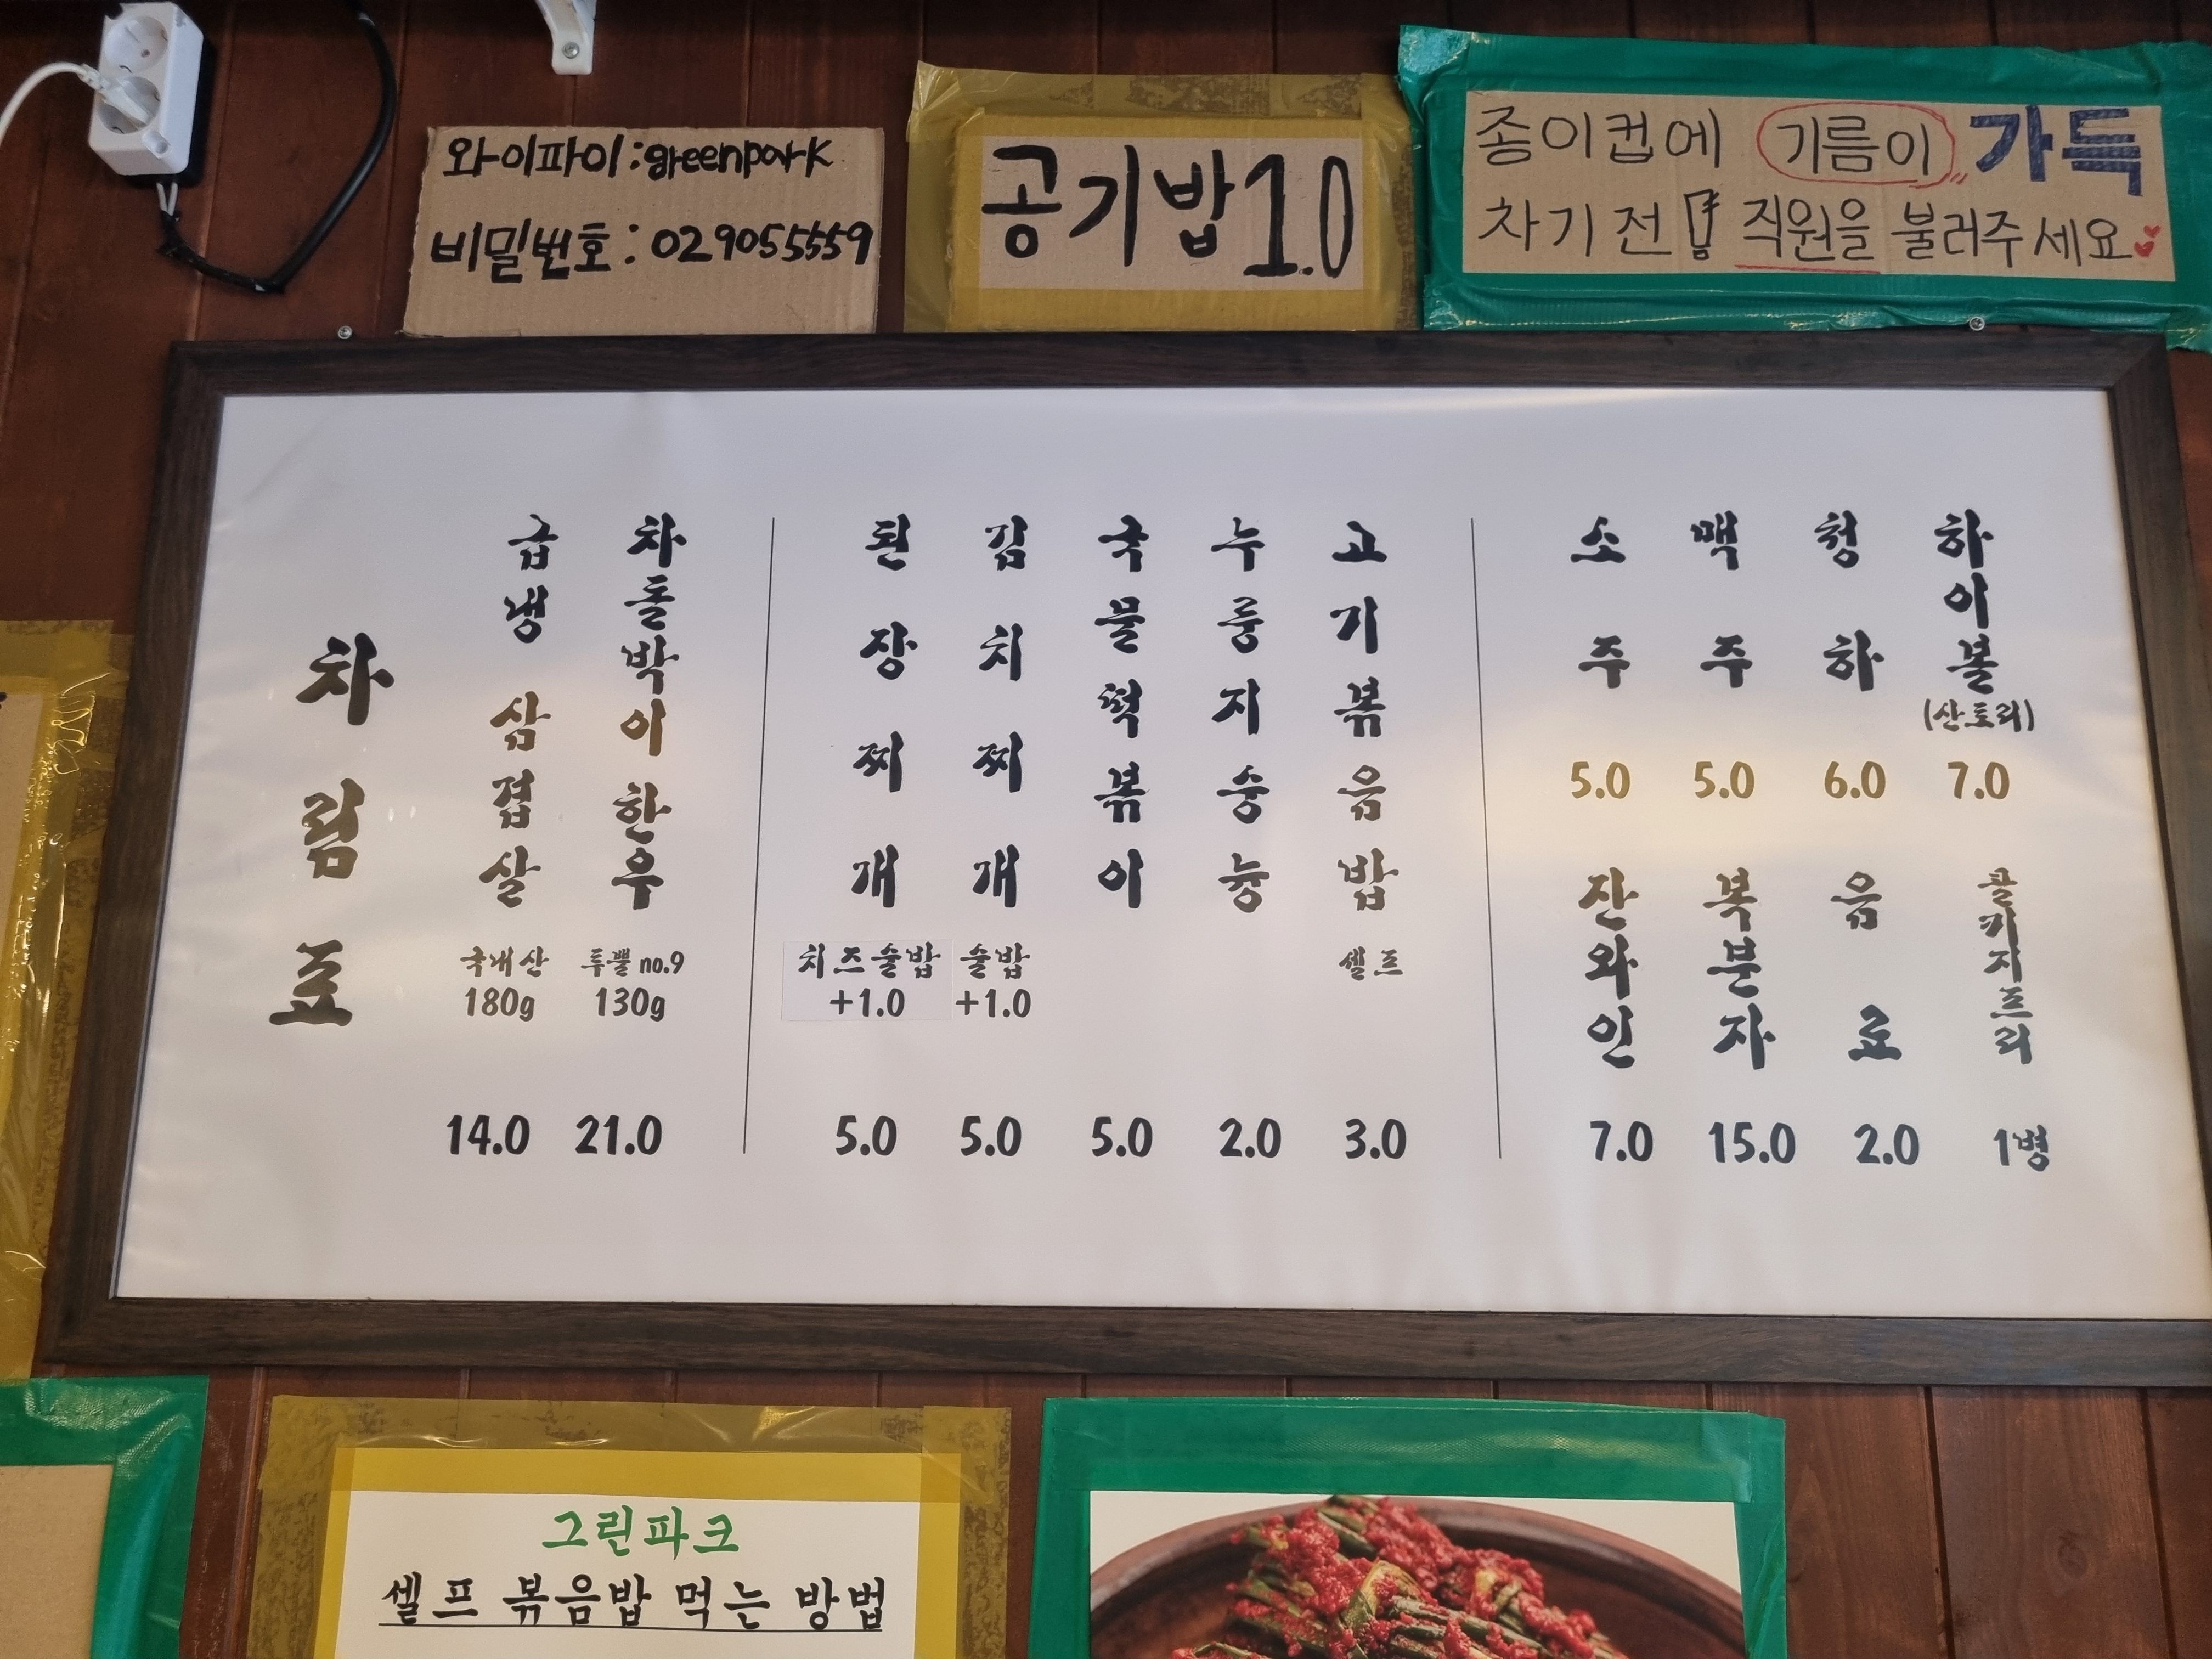 와이파이:greenpark
비밀번호:029055559
공기밥1.0
종이컵에 기름이 가득
차기 전 직원을 불러주세요
차림표
급냉 삼겹살
국내산
180g
14.0
차돌박이 한우
투뿔 no.9
130g
21.0
된장찌개
치즈술밥
+1.0
5.0
김치찌개
술밥
+1.0
5.0
국물떡볶이
5.0
누룽지숭늉
2.0
고기볶음밥
셀프
3.0
소주
5.0
맥주
5.0
청하
6.0
하이볼
(산토리)
7.0
잔와인
7.0
복분자
15.0
음료
2.0
콜키지프리
1병
그린파크
셀프 볶음밥 먹는 방법